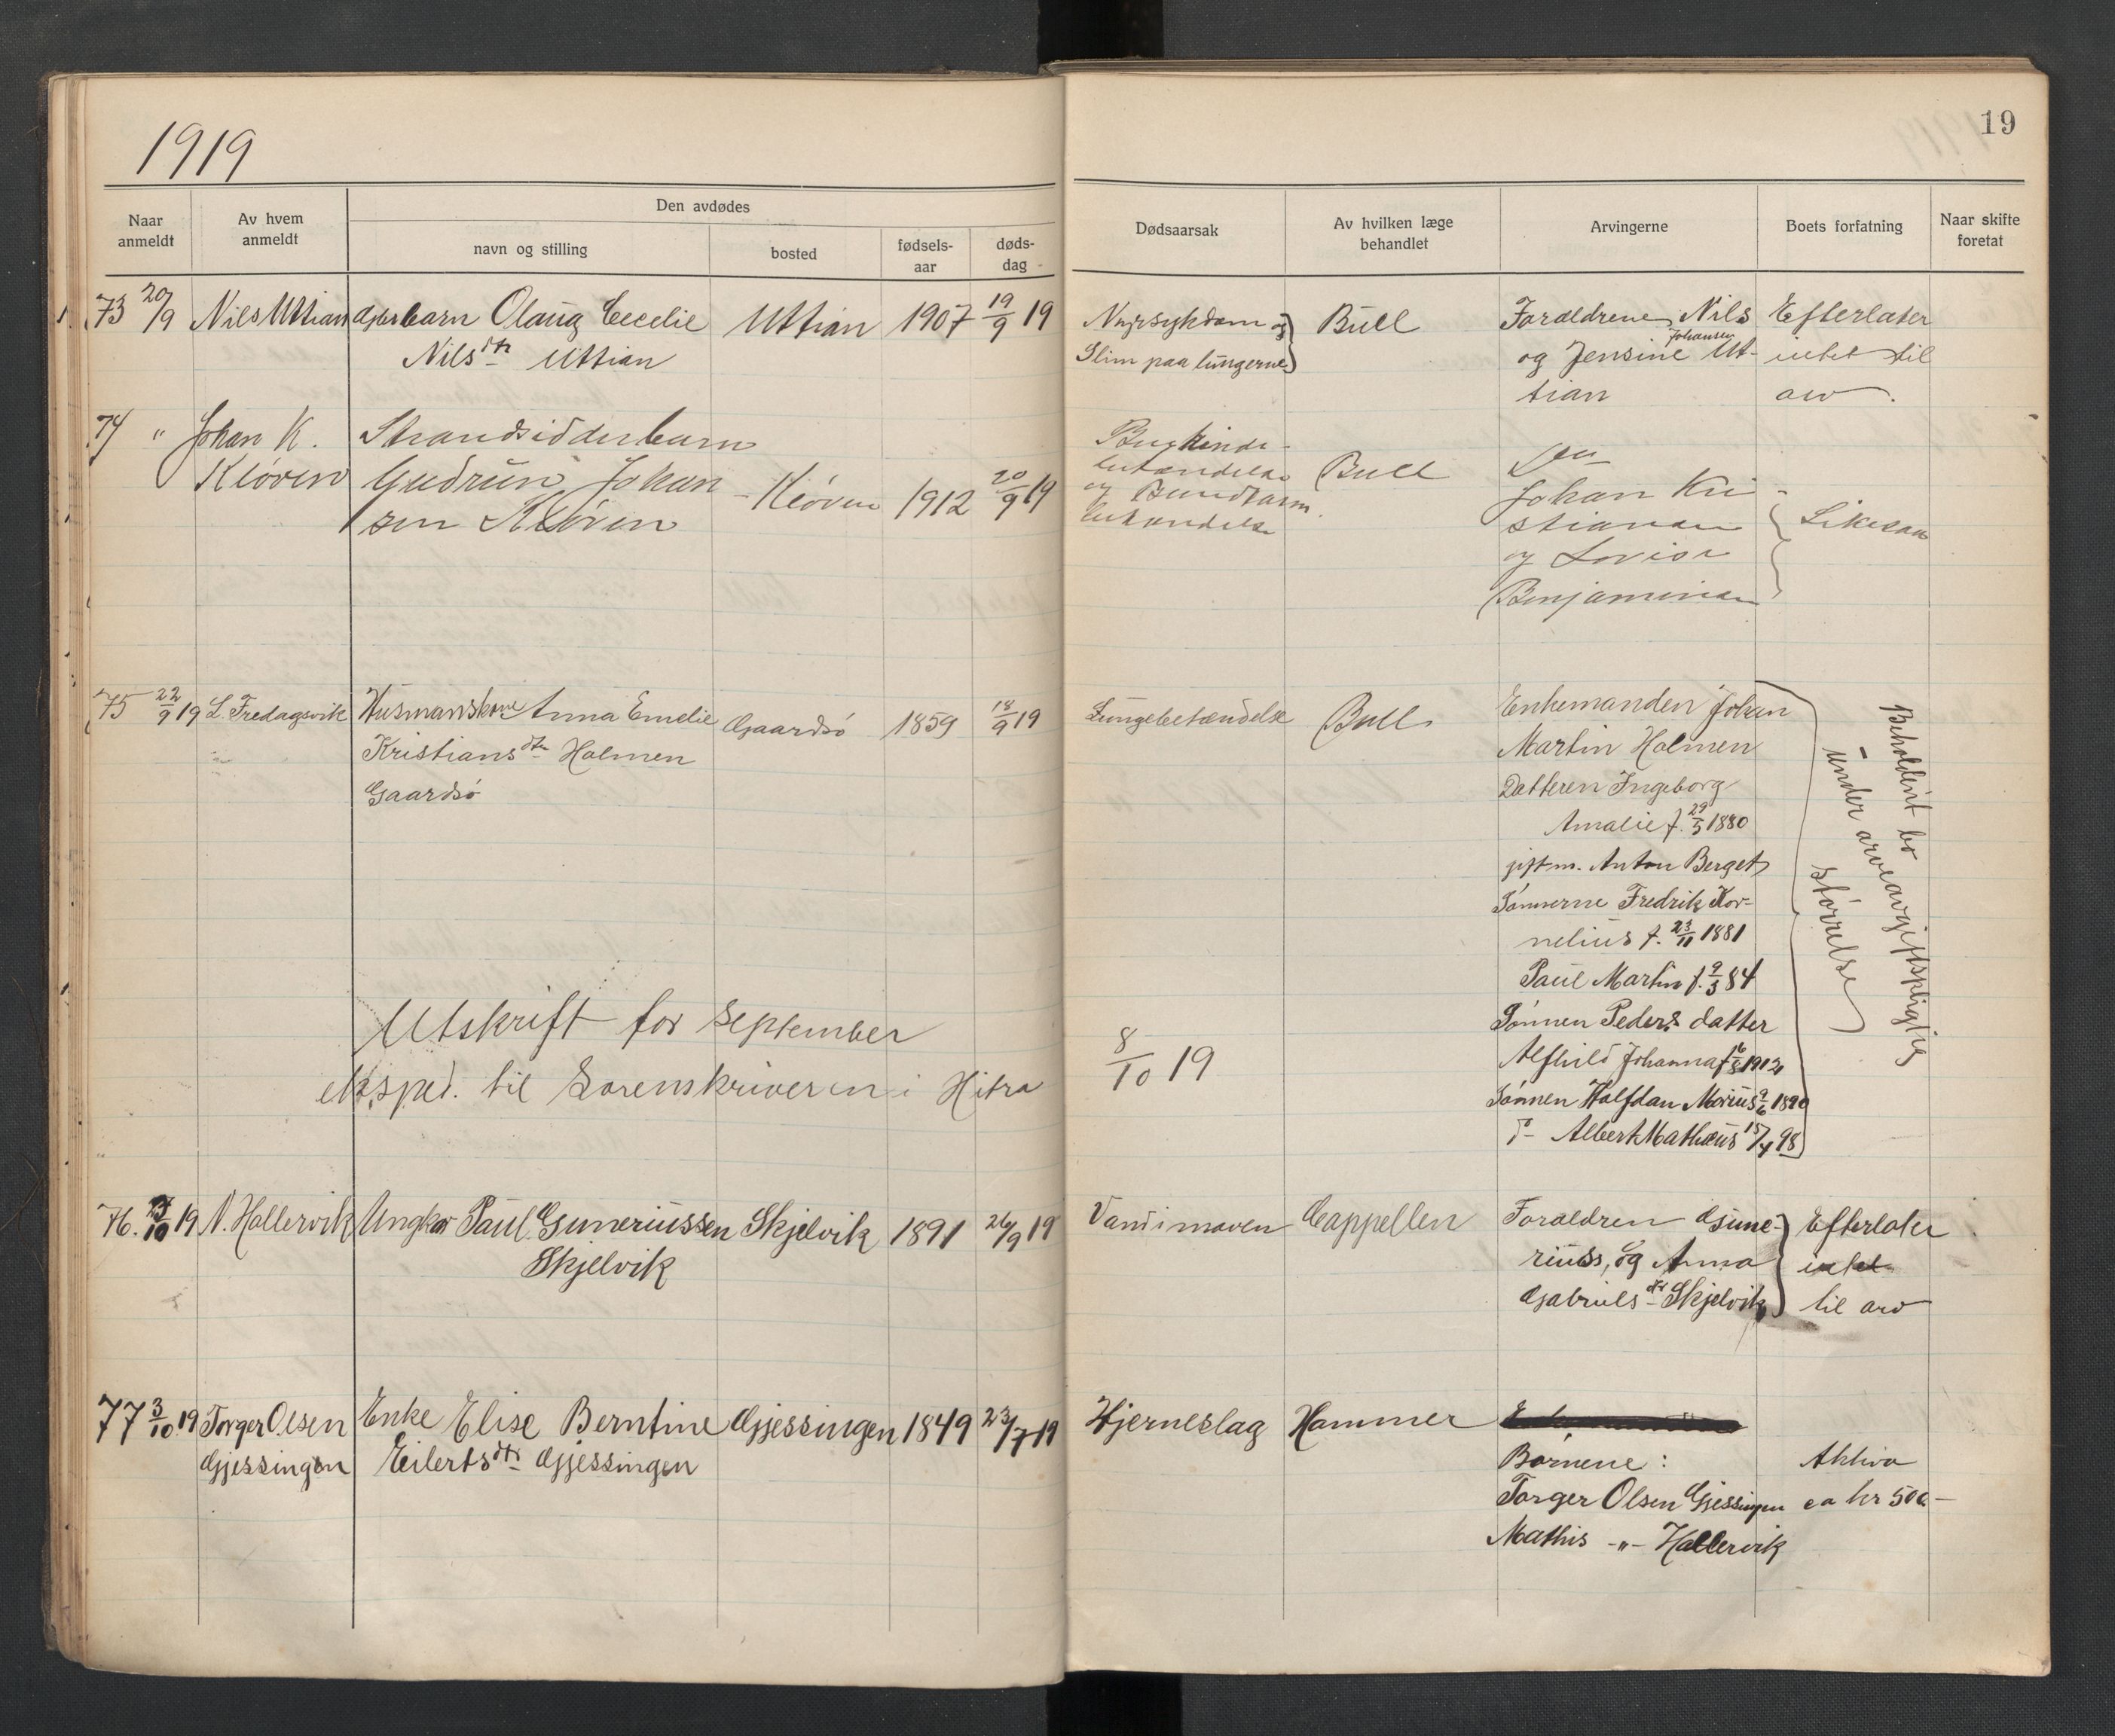 1919
19
Den avdødes
Naar anmeldt
Av hvem anmeldt
navn og stilling
bosted
fødsels-aar
døds-dag
Dødsaarsak
Av hvilken læge behandlet
Arvingerne
Boets forfatning
Naar skifte foretat
73 20/9 Nils Uttian Gbr barn Olaug Cecelie Uttian 1907 19/9 19
Nilsdtr Uttian
Nyrsykdom og Bull Foraldrene Nils Efterlater
Slim paa lungerne og Jensine Johansen Ut- intet til
tian arv.
74 " Johan K. Strandsidderbarn
Kløven Gudrun Johan- Kløven 1912 20/9 19
sen Kløven
Bughinde-
betændelse Bull
og
betændelse
Johan Kri-
stiansen Likesaa
og Lovise
Benjaminsen
75 22/9 19 L. Fredagsvik Husmanskone Anna Emelie Gaardsø 1859 18/9 19
" Kristiansdtr Holmen
Gaardsø
Lungebetændelse Bull Enkemanden Johan
Martin Holmen
Datteren Ingeborg
Amalie f. 29/5 1880
gift m. Anton Berget
Sønnerne Fredrik Kor-
nelius f. 23/11 1881
Paul Martin f. 9/3 84
Sønnen Peders datter
Alfhild Johanna f 16/8 1912
Sønnen Halfdan Morius 9/6 1890
do- Albert Mathæus 15/4 98
Beholdent bo
under arveavgiftspligtig
størrelse
Utskrift for September
eksped. til Sorenskriveren i Hitra 8/10 19
76. 3/10 19 N. Hallervik Ungkar Paul Guneriussen Skjelvik 1891 26/9 19
Skjelvik
Vand i maven Cappellen Foraldren Gune- Efterlater
riuss, og Anna intet
Gabrielsdtr Skjelvik til arv
77 3/10 19 Torger Olsen Enke Elise Berntine Gjessingen 1849 23/7 19
Gjessingen Eilertsdtr Gjessingen
Hjerneslag Hammer
Børnene: Aktiva
Torger Olsen Gjessingen ca kr 500.-
Mathis -"- Hallervik